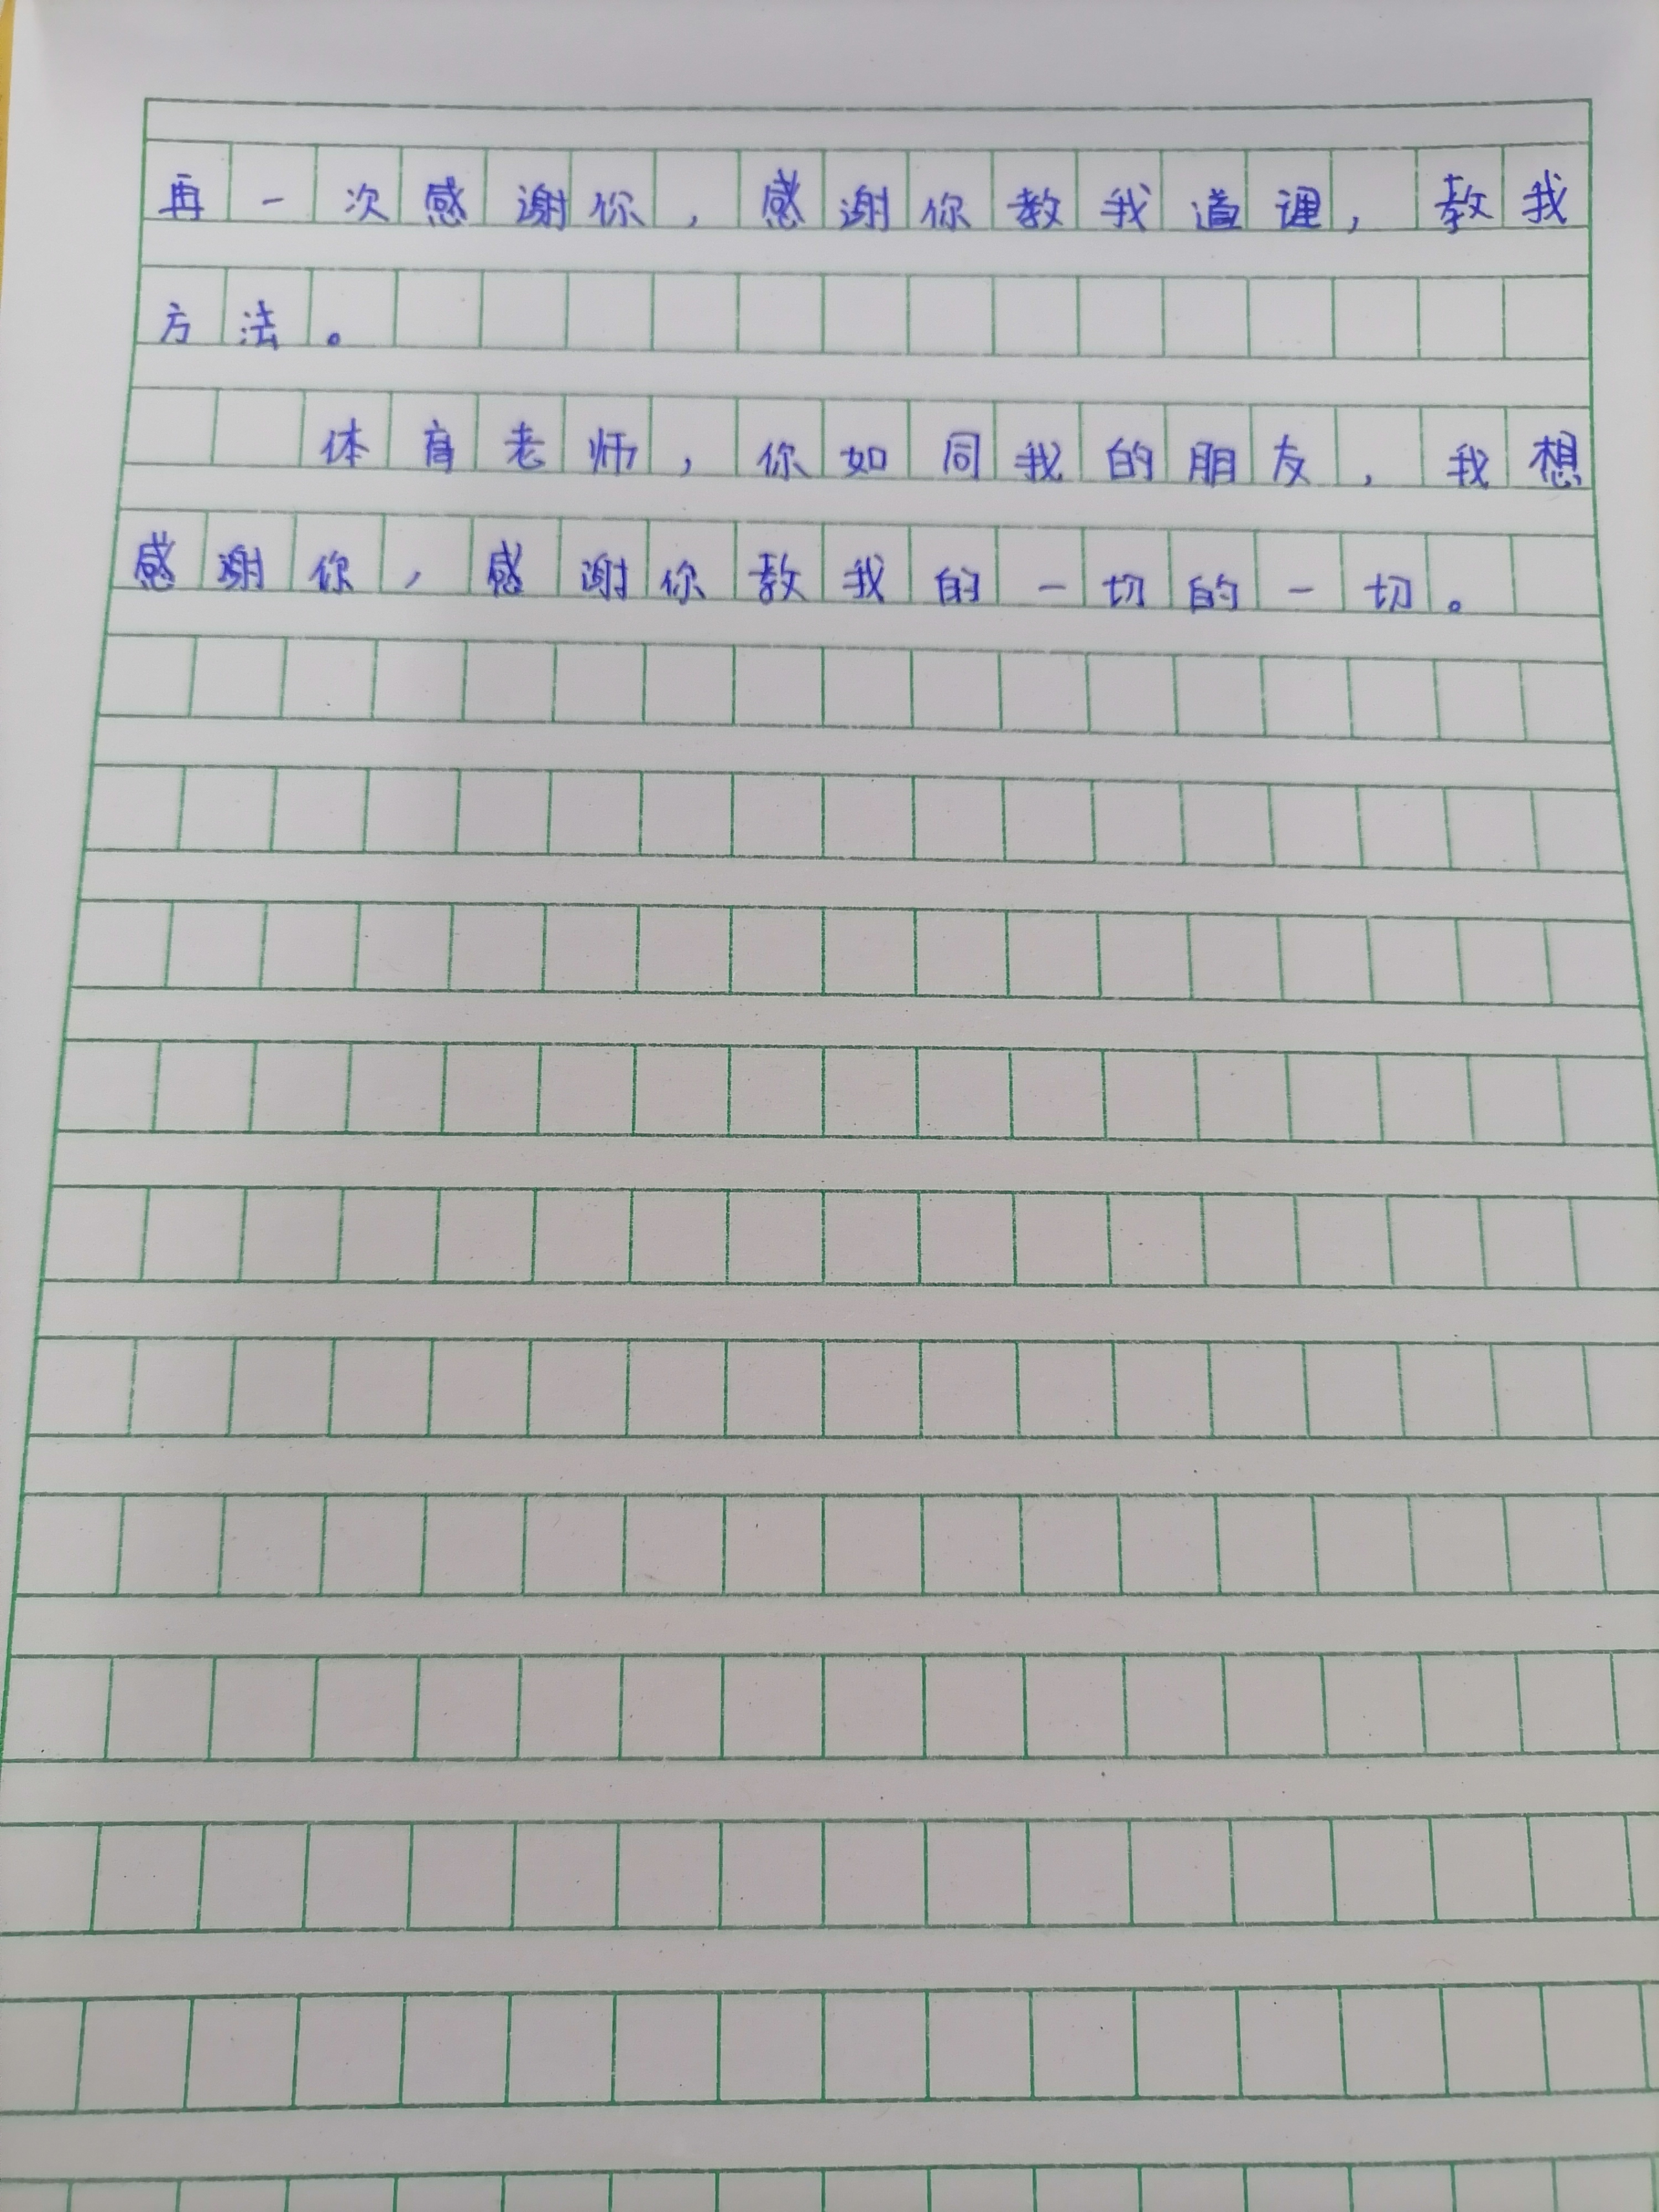 再一次感谢你，感谢你教我道理，教我
方法。
体育老师，你如同我的朋友，我想
感谢你，感谢你教我的一切的一切。